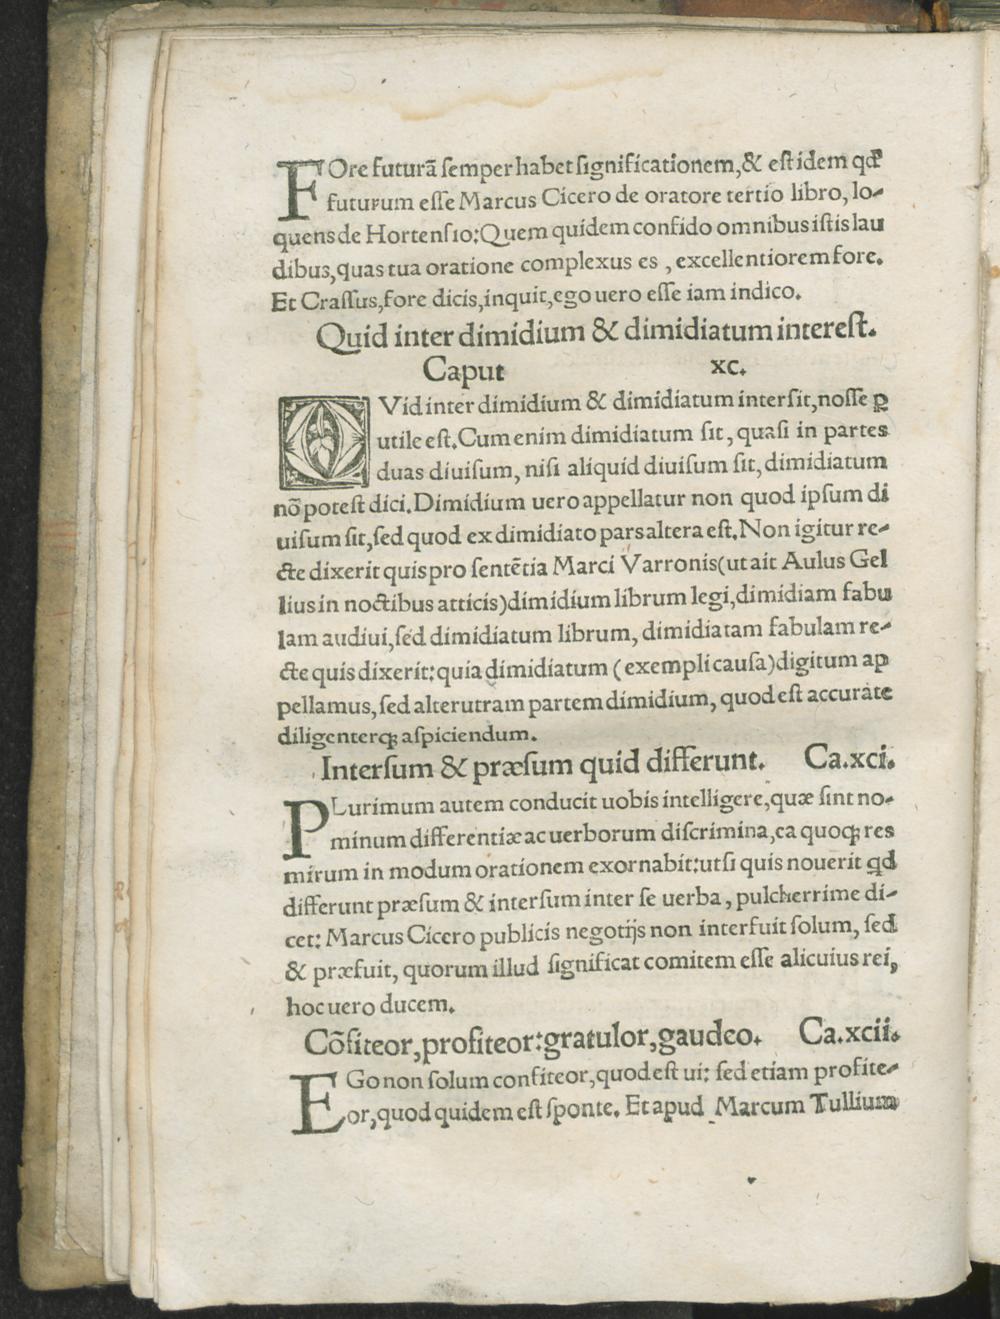 FOre futurā semper habet significationem, & est idem qđ
futurum esse Marcus Cicero de oratore tertio libro, lo-
quens de Hortensio: Quem quidem confido omnibus istis lau
dibus, quas tua oratione complexus es, excellentiorem fore.
Et Crassus, fore dicis, inquit, ego uero esse iam indico.
Quid inter dimidium & dimidiatum interest.
Caput xc.
QVid inter dimidium & dimidiatum intersit, nosse ꝑ
utile est. Cum enim dimidiatum sit, quasi in partes
duas diuisum, nisi aliquid diuisum sit, dimidiatum
nō potest dici. Dimidium uero appellatur non quod ipsum di
uisum sit, sed quod ex dimidiato pars altera est. Non igitur re-
cte dixerit quis pro sentētia Marci Varronis (ut ait Aulus Gel
lius in noctibus atticis) dimidium librum legi, dimidiam fabu
lam audiui, sed dimidiatum librum, dimidiatam fabulam re-
cte quis dixerit: quia dimidiatum (exempli causa) digitum ap
pellamus, sed alterutram partem dimidium, quod est accurate
diligenterqꝫ aspiciendum.
Intersum & præsum quid differunt. Ca.xci.
PLurimum autem conducit uobis intelligere, quæ sint no-
minum differentiæ ac uerborum discrimina, ea quoqꝫ res
mirum in modum orationem exornabit: ut si quis nouerit qd
differunt præsum & intersum inter se uerba, pulcherrime di-
cet: Marcus Cicero publicis negotijs non interfuit solum, sed
& præfuit, quorum illud significat comitem esse alicuius rei,
hoc uero ducem.
Cōfiteor, profiteor: gratulor, gaudeo. Ca.xcii.
EGo non solum confiteor, quod est ui: sed etiam profite-
or, quod quidem est sponte. Et apud Marcum Tullium